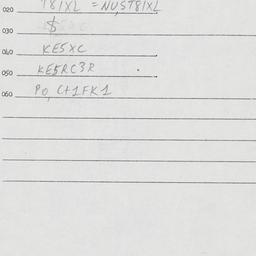 020 T8/XL = NU,ST8/XL
030 $
040 KE5XC
050 KE5RC3R
060 PO, C+1FK1